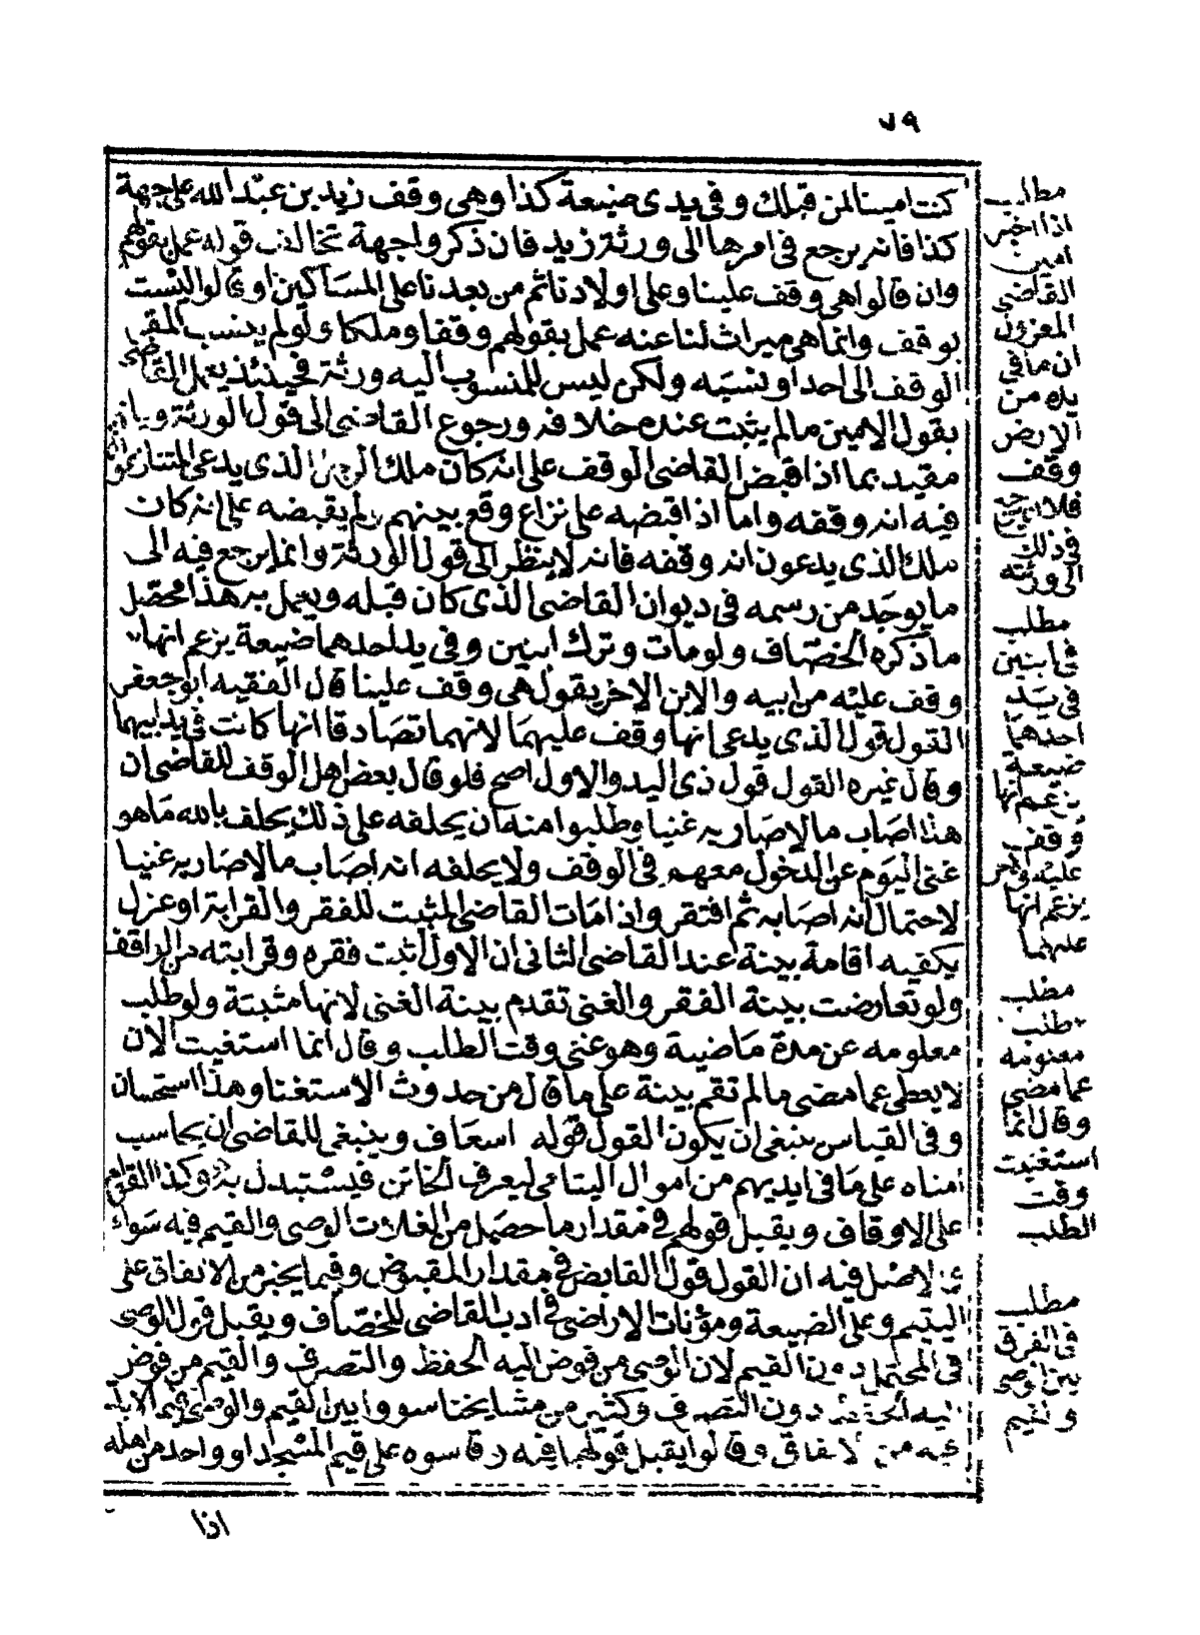 ٧٩
كنت امينا لمن قبلك وفي يدى ضيعة كذا وهى وقف زيد بن عبد الله على جهة
كذا فانه يرجع فى امرها الى ورثة زيد فان ذكروا جهة تخالف قوله عمل بقولهم
وان قالوا هى وقف علينا وعلى اولادنا ثم من بعدنا على المساكين او قالوا ليست
بوقف وانما هى ميراث لنا عنه عمل بقولهم وقفا وملكا ولو لم ينسب المقر
الوقف الى احد او نسبه ولكن ليس للمنسوب اليه ورثة فحينئذ يعمل القاضى
بقول الامين ما لم يثبت عنده خلافه ورجوع القاضى الى قول الورثة
مقيد بما اذا قبض القاضى الوقف على انه كان ملك الذى يدعى المتنازعون
فيه انه وقفه واما اذا قبضه على نزاع وقع بينهم ولم يقبضه على انه كان
ملك الذى يدعون انه وقفه فانه لا ينظر الى قول الورثة وانما يرجع فيه الى
ما يوجد من رسمه فى ديوان القاضى الذى كان قبله ويعمل به هذا محصل
ما ذكره الخصاف ولو مات وترك ابنين وفى يد احدهما ضيعة يزعم انها
وقف عليه من ابيه والابن الاخر يقول هى وقف علينا قال الفقيه ابو جعفر
القول قول الذى يدعى انها وقف عليهما لانهما تصادقا انها كانت فى يد ابيهما
وقال غيره القول قول ذى اليد والاول اصح فلو قال بعض اهل الوقف للقاضى ان
هذا اصاب مالا صار به غنيا وطلبوا منه ان يحلفه على ذلك يحلف بالله ما هو
غنى اليوم عن الدخول معهم فى الوقف ولا يحلفه انه اصاب مالا صار به غنيا
لاحتمال انه اصابه ثم افتقر واذا مات القاضى المثبت للفقر والقرابة او عزل
يكفيه اقامة بينة عند القاضى الثانى ان الاول اثبت فقره وقرابته من الواقف
ولو تعارضت بينة الفقر والغنى تقدم بينة الغنى لانها مثبتة ولو طلب
معلومه عن مدة ماضية وهو غنى وقت الطلب وقال انما استغنيت الان
لا يعطى عما مضى ما لم تقم بينة على ما قال من حدوث الاستغنا وهذا استحسان
وفى القياس ينبغى ان يكون القول قوله اسعاف وينبغى للقاضى ان يحاسب
امناه على ما فى ايديهم من اموال اليتامى ليعرف الخائن فيستبدل به وكذا القوام
على الاوقاف ويقبل قولهم فى مقدار ما حصل من الغلات الوصى والقيم فيه سواء
الاصل فيه ان القول قول القابض فى مقدار المقبوض وفيما يخبر من الانفاق على
اليتيم وعلى الضيعة ومؤنات الاراضى فى ادب القاضى للخصاف ويقبل قول الوصى
فى المحتمل دون القيم لان الوصى من فوض اليه الحفظ والتصرف والقيم من فوض
اليه الحفظ دون التصرف وكثير من مشايخنا سووا بين القيم والوصى فيما لا بد
فيه من الانفاق وقالوا يقبل قولهما فيه وقاسوه على قيم المسجد او واحد من اهله
اذا
مطلب
اذا اخبر
امين
القاضى
المعزول
ان ما فى
يده من
الارض
وقف
فلان يرجع
فى ذلك
الى ورثته
مطلب
فى ابنين
فى يد
احدهما
ضيعة
يزعم انها
وقف
عليه والاخر
يزعم انها
عليهما
مطلب
طلب
معلومه
عما مضى
وقال انما
استغنيت
وقت
الطلب
مطلب
فى الفرق
بين الوصى
والقيم